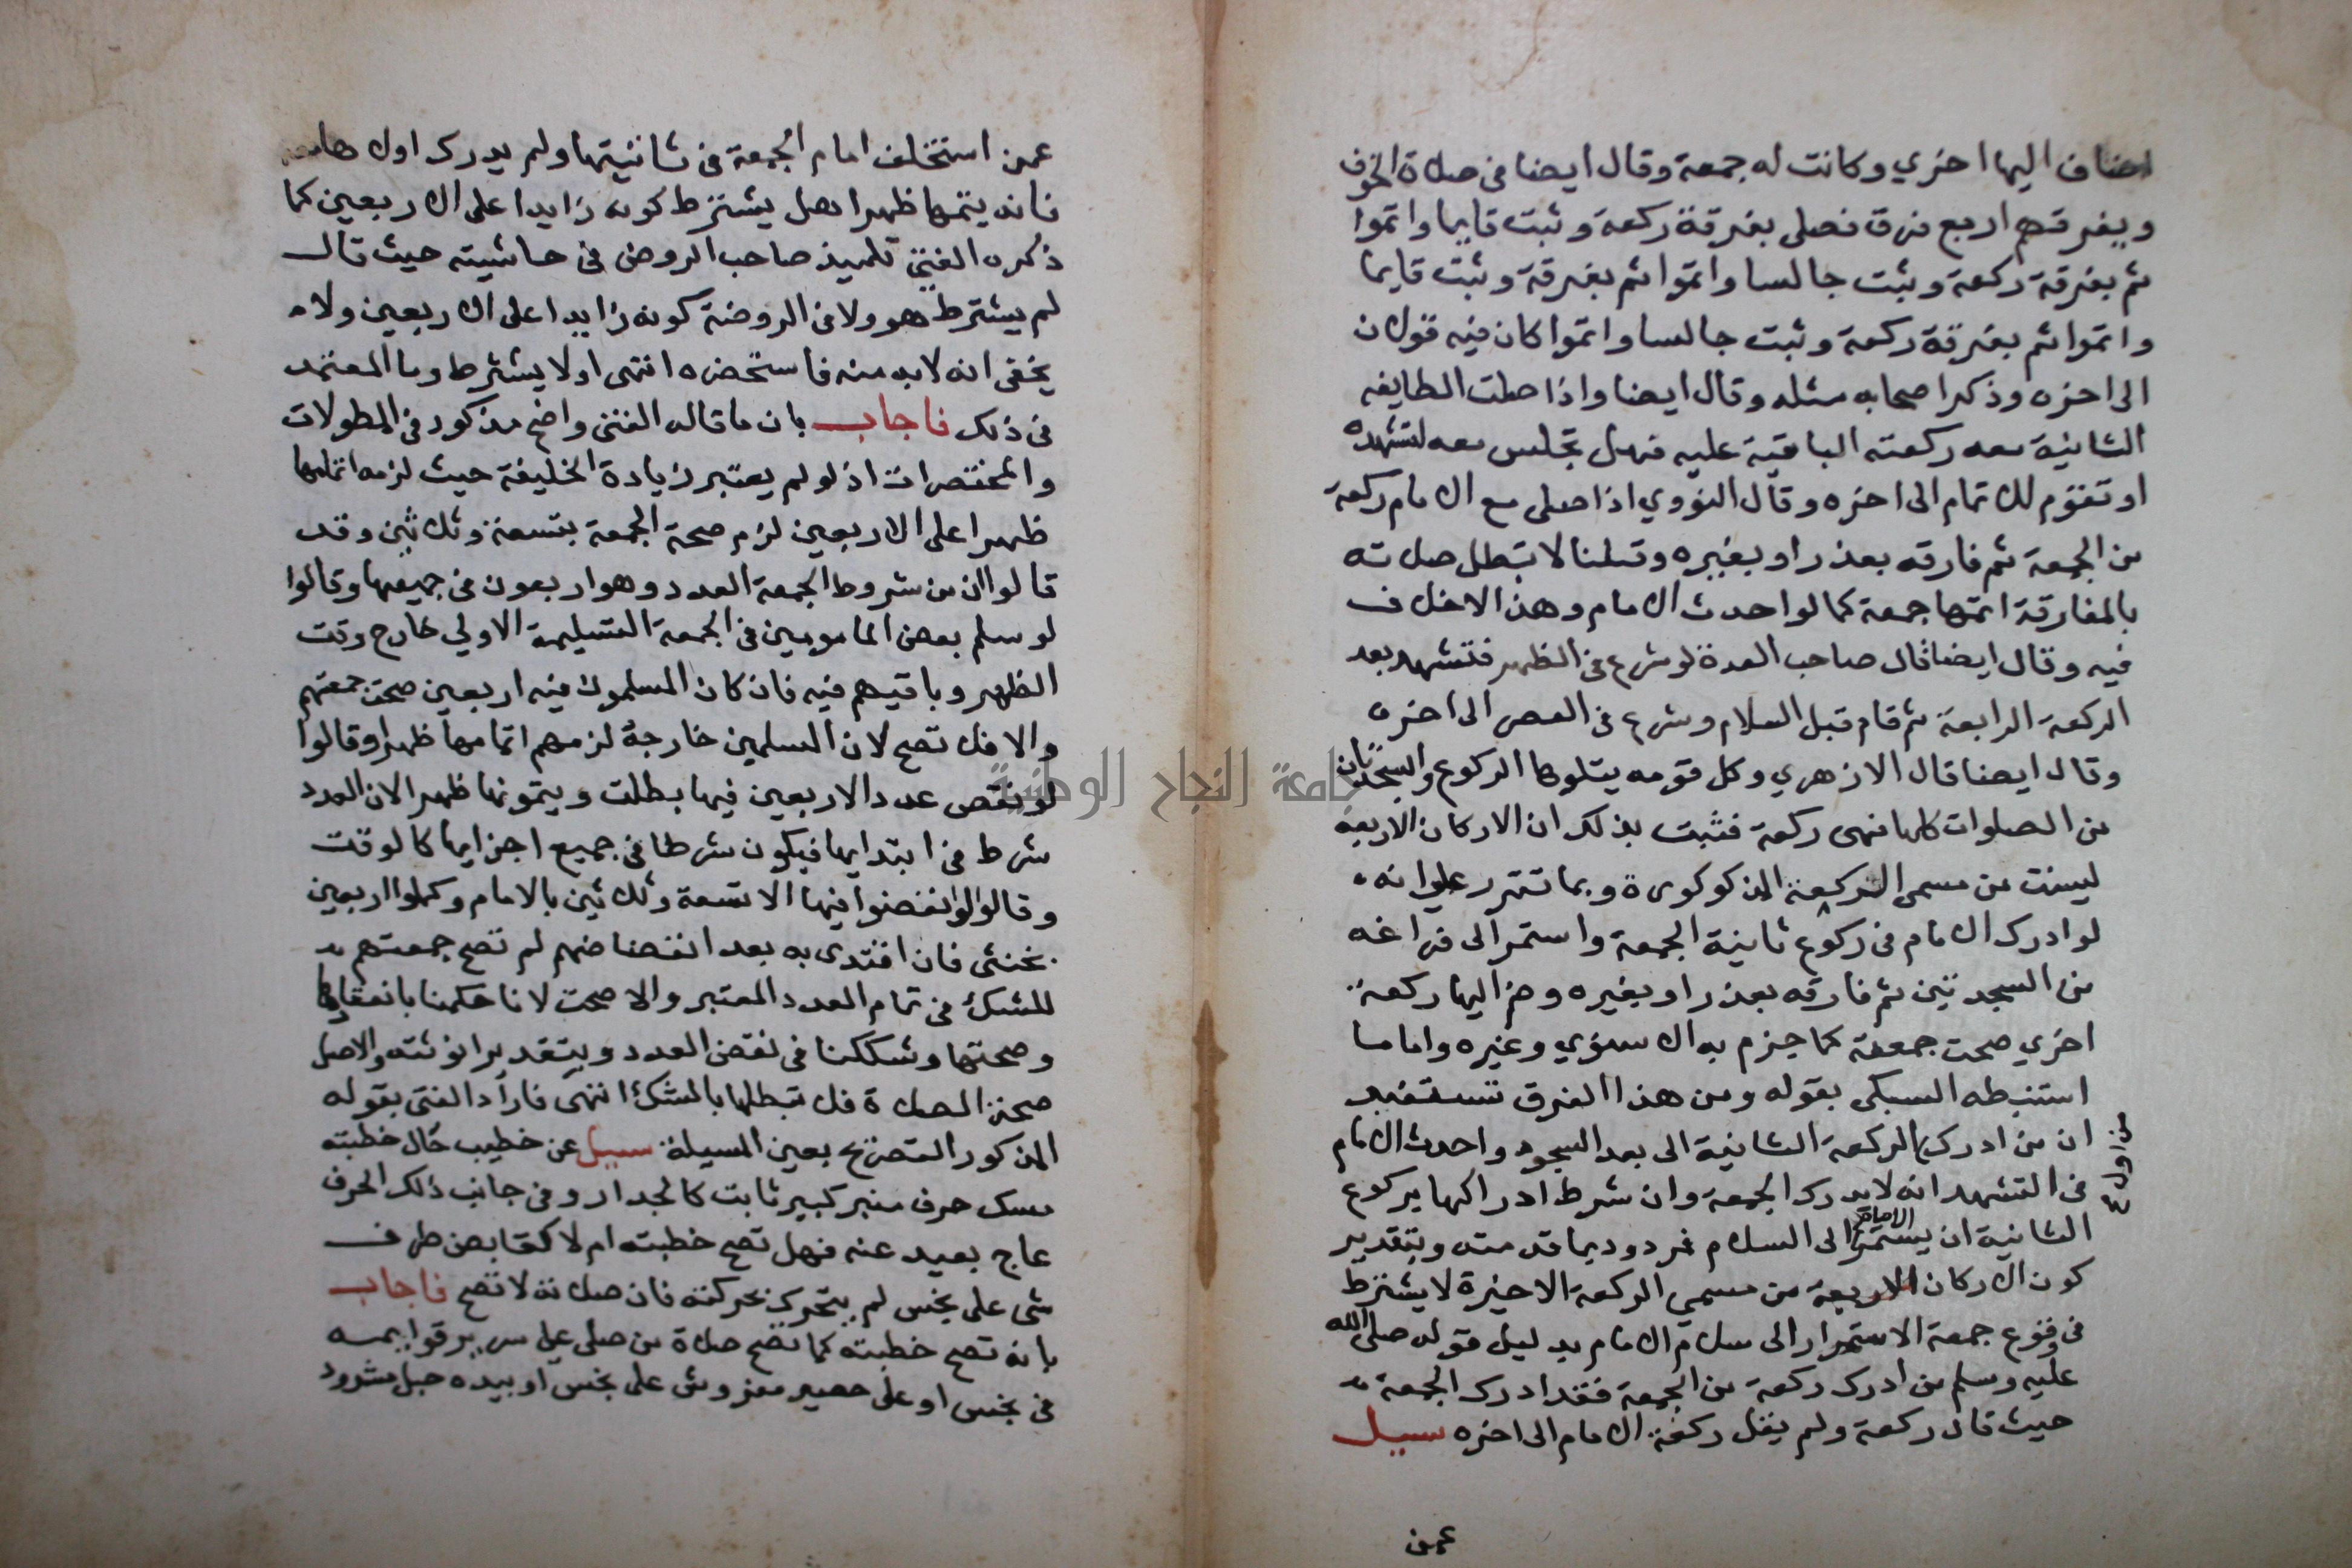 اضاف اليها اخري وكانت له جمعة وقال ايضا في صلاة الخوف
ويفرقهم اربع فرق فصلى بفرقة ركعة وثبت قايما واتموا
ثم بفرقة ركعة وثبت جالسا واتموا ثم بفرقة وثبت قايما
واتموا ثم بفرقة ركعة وثبت جالسا واتموا كان فيه قولان
الى اخره وذكر اصحابه مثله وقال ايضا واذا صلت الطايفه
الثانية معه ركعته الباقية عليه فهل تجلس معه لتشهده
او تقوم للاتمام الى اخره وقال النووي اذا صلى مع الامام ركعة
من الجمعة ثم فارقه بعذر او بغيره وقلنا لا تبطل صلاته
بالمفارقة اتمها جمعة كما لو احدث الامام وهذا لا خلاف
فيه وقال ايضا قال صاحب العدة لو شرع في الظهر فتشهد بعد
الركعة الرابعة ثم قام قبل السلام وشرع في العصر الى اخره
وقال ايضا قال الازهري وكل قومه يتلوها الركوع والسجدتان
من الصلوات كلها فهى ركعة فثبت بذلك ان الاركان الاربعة
ليست من مسمى الركعة المذكوره وبما تقرر علم انه
لو ادرك الامام في ركوع ثانية الجمعة واستمر الى فراغه
من السجدتين ثم فارقه بعذر او بغيره وضم اليها ركعة
اخري صحت جمعته كما جزم به الاسنوي وغيره واما ما
استنبطه السبكى بقوله ومن هذا الفرق تستفيد
ان من ادرك الركعة الثانية الى بعد السجود واحدث الامام
من اول
في التشهد انه لا يدرك الجمعة وان شرط ادراكها بركوع
الثانية ان يستمر الامام الى السلام فمردود بما قدمته وبتقدير
كون الاركان الاربعة من مسمي الركعة الاخيرة لا يشترط
في وقوع جمعة الاستمرار الى سلام الامام بدليل قوله صلى الله
عليه وسلم من ادرك ركعة من الجمعة فقد ادرك الجمعة
حيث قال ركعة ولم يقل ركعة الامام الى اخره سيل
عمن
عمن استخلف امام الجمعة في ثانيتها ولم يدرك اولاها معه
فانه يتمها ظهرا هل يشترط كونه زايدا على الاربعين كما
ذكره الفتى تلميذ صاحب الروض في حاشيته حيث قال
لم يشترط هو ولا في الروضة كونه زايدا على الاربعين ولا
يخفى انه لا بد منه فاستحضره انتهى او لا يشترط وما المعتمد
في ذلك فاجاب بان ما قاله الفتى واضح مذكور في المطولات
والمختصرات اذ لو لم يعتبر زيادة الخليفة حيث لزمه اتمامها
ظهرا على الاربعين لزم صحة الجمعة بتسعة وثلاثين وقد
قالوا ان من شروط الجمعة العدد وهو اربعون في جميعها وقالوا
لو سلم بعض المامومين في الجمعة التسليمة الاولي خارج وقت
الظهر وباقيهم فيه فان كان المسلمون فيه اربعين صحت جمعتهم
والا فلا تصح لان المسلمين خارجه لزمهم اتمامها ظهرا وقالوا
لو نقص عدد الاربعين فيها بطلت ويتمونها ظهرا لان العدد
شرط في ابتدايها فيكون شرطا في جميع اجزايها كالوقت
وقالوا لو انفضوا فيها الا تسعة وثلاثين بالامام وكملوا اربعين
بخنثى فان اقتدى به بعد انفضاضهم لم تصح جمعتهم
للشك في تمام العدد المعتبر والا صحت لانا حكمنا بانعقادها
وصحتها وشككنا في نقص العدد وبتقدير انوثته والاصل
صحة الصلاة فلا نبطلها بالشك انتهى فاراد الفتى بقوله
المذكور التصريح بعين المسيلة سيل عن خطيب حال خطبته
مسك حرف منبر كبير ثابت كالجدار وفي جانب ذلك الحرف
عاج بعيد عنه فهل تصح خطبته ام لا كقابض طرف
شى على نجس لم يتحرك بحركته فان صلاته لا تصح فاجاب
بانه تصح خطبته كما تصح صلاة من صلى على سرير قوايمه
في نجس او على حصير مفروش على نجس او بيده حبل مشدود
جامعة النجاح الوطنية